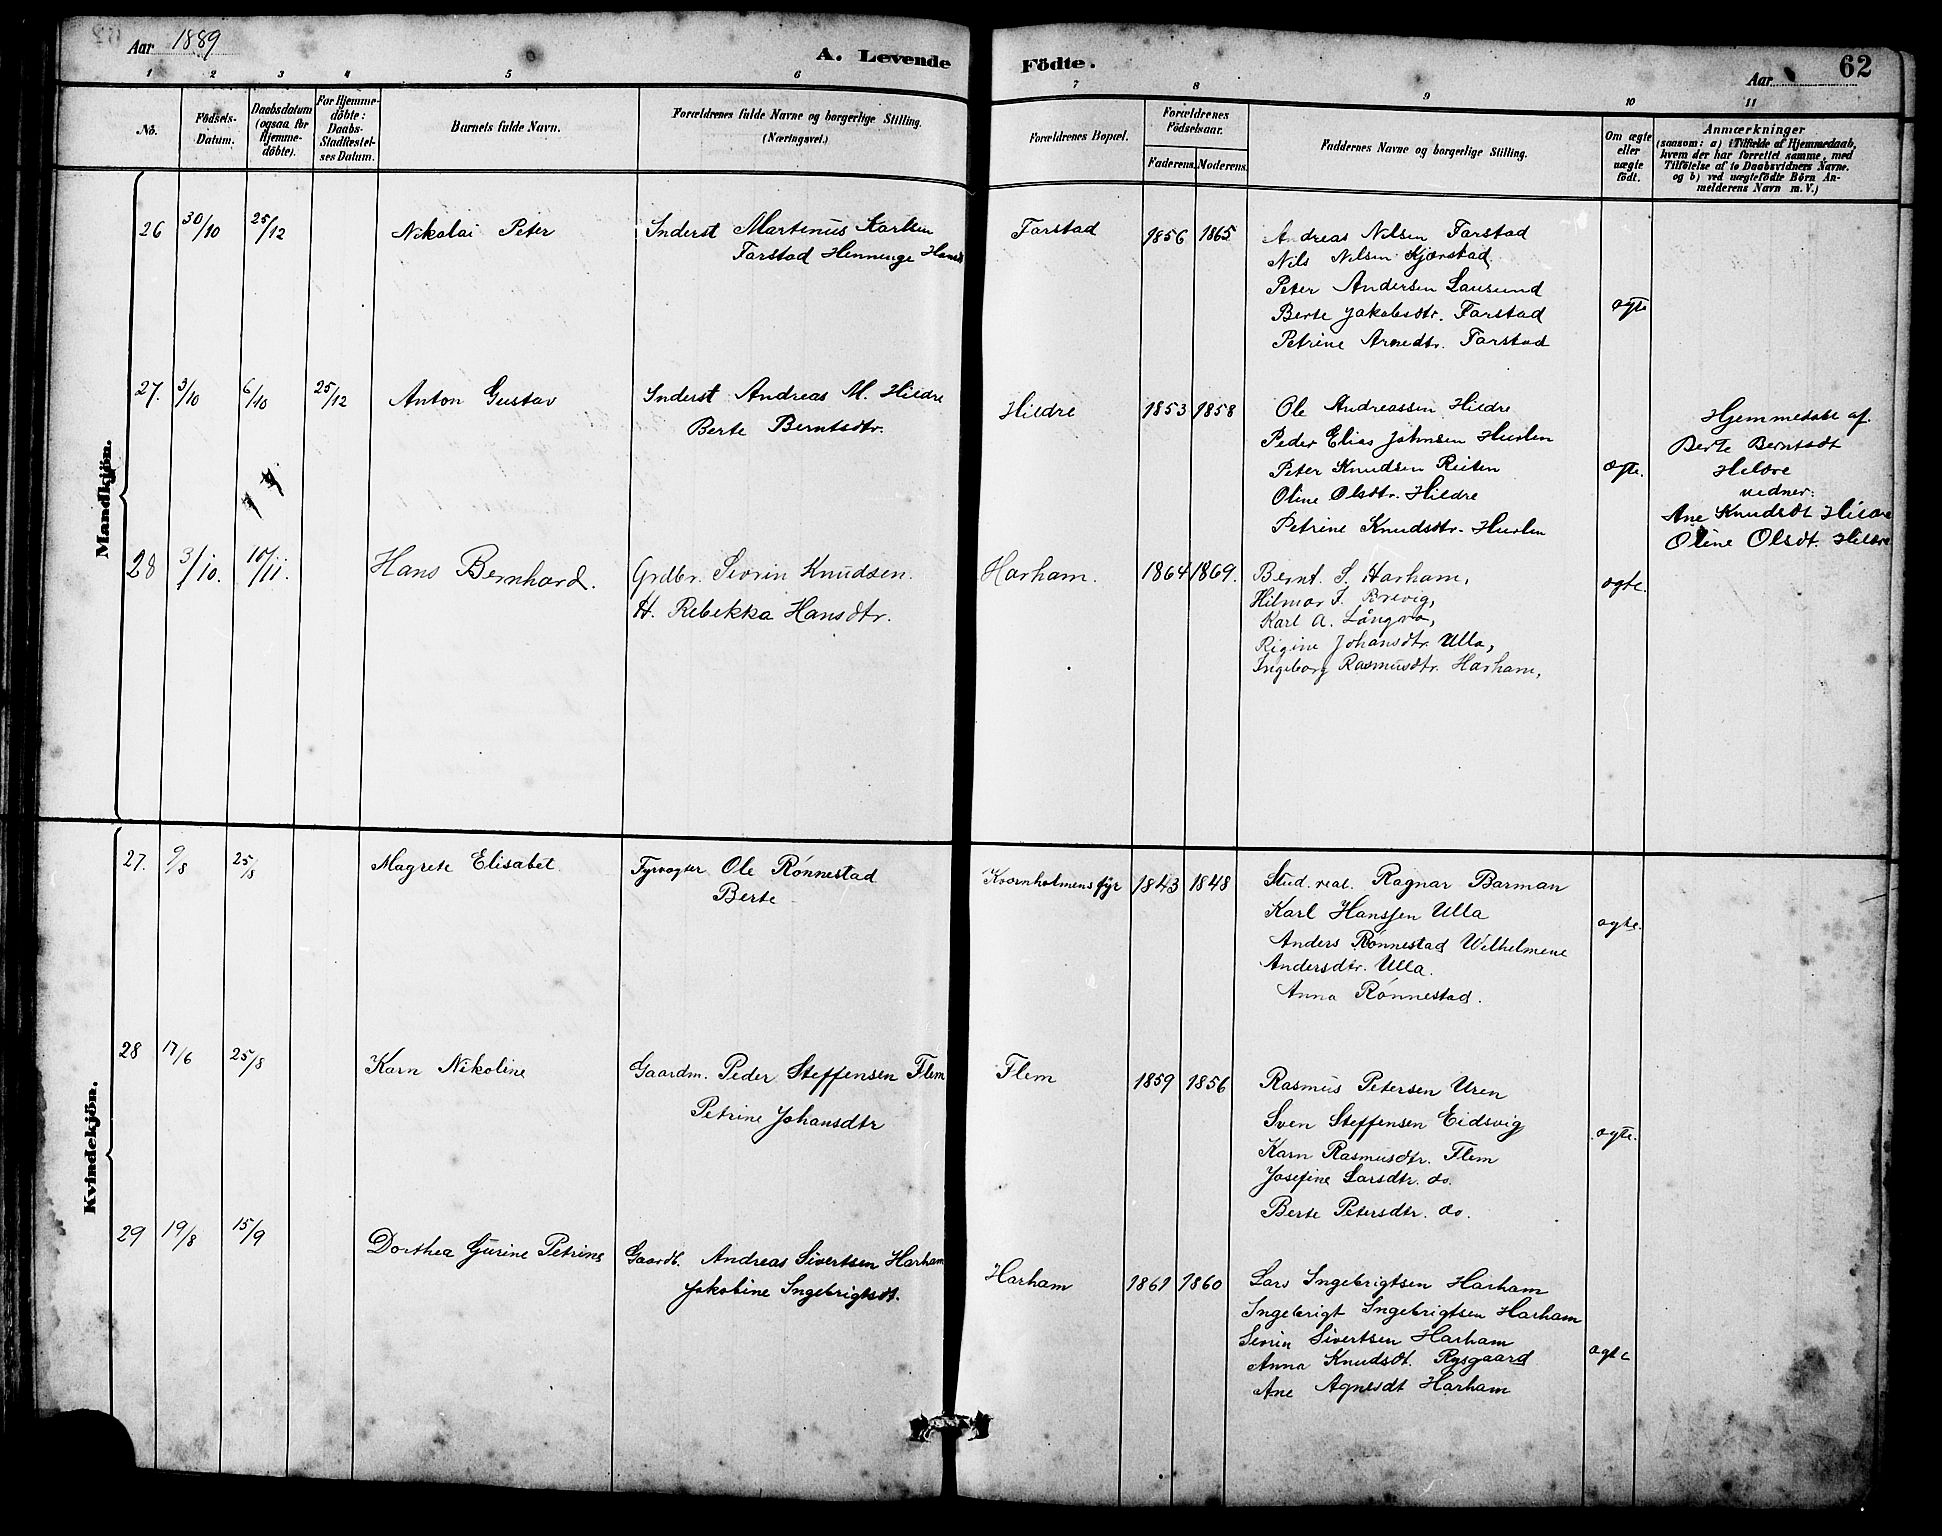 Aar 1889
A. Levende Födte.
Aar
62
1 2 3 4 5 6 7 8 9 10 11
No.
Födsels-Datum.
Daabsdatum (ogsaa for Hjemme-döbte).
For Hjemme-döbte: Daabs-Stadfæstel-ses Datum.
Barnets fulde Navn.
Forældrenes fulde Navne og borgerlige Stilling.
(Næringsvei.)
Forældrenes Bopæl.
Forældrenes Födselsaar.
Faderens. Moderens.
Faddernes Navne og borgerlige Stilling.
Om ægte eller uægte födt.
Anmærkninger
(saasom: a) i Tilfælde af Hjemmedaab,
hvem der har forrettet samme, med
Tilföielse af to Daabsvidners Navne.
og b) ved uægtefödte Börn An-
melderens Navn m. V.)
Mandkjön.
26 30/10 25/12 Nikolai Peter Inderst Martinus Karlsen Farstad 1856 1865 Andreas Nilsen Farstad
Farstad Henninge Hansd
Nils Nilsen Kjærstad
Peter Andersen Lausund
Berte Jakobsdtr. Farstad ægte
Petrine Arnedtr. Farstad
27. 3/10 6/10 25/12 Anton Gustav Inderst Andreas M. Hildre Hildre 1853 1858 Ole Andreassen Hildre Hjemmedøbt af
Berte Berntsdtr.
Peder Elias Johnsen Hurlen Berte Berntsdt
Peter Knudsen Reiten ægte. Hildre
Oline Olsdtr. Hildre vidner:
Petrine Knudsdtr. Hurlen Ane Knudsdt Hildre
Oline Olsdt. Hildre
28 3/10. 10/11. Hans Bernhard. Grdbr. Sivrin Knudsen. Harham. 1864 1869. Bernt. S. Harham, ægte.
H. Rebekka Hansdtr.
Hilmar J. Brevig,
Karl A. Longva,
Rigine Johansdtr Ulla,
Ingeborg Rasmusdtr. Harham,
Kvindekjön.
27. 9/8 25/8 Magrete Elisabet Fyrvogter Ole Rönnestad Kvernholmens fyr 1843 1848 Stud. real. Ragnar Barman
Berte
Karl Hanssen Ulla ægte.
Anders Rönnestad Wilhelmene
Andersdtr. Ulla.
Anna Rönnestad.
28 17/6 25/8 Karn Nikoline Gaardm. Peder Steffensen Flem Flem 1859 1856 Rasmus Petersen Uren
Petrine Johansdtr
Sven Steffensen Eidsvig ægte.
Karn Rasmusdtr. Flem
Josefine Larsdtr. do.
Berte Petersdtr. do.
29 19/8 15/9 Dorthea Gurine Petrine Gaardb. Andreas Sivertsen Harham Harham 1861 1860 Lars Ingebrigtsen Harham
Jakobine Ingebrigtsdt.
Ingebrigt Ingebrigtsen Harham
Sevrin Sivertsen Harham ægte
Anna Knudsdt. Rysgaard
Ane Agnesdt Harham